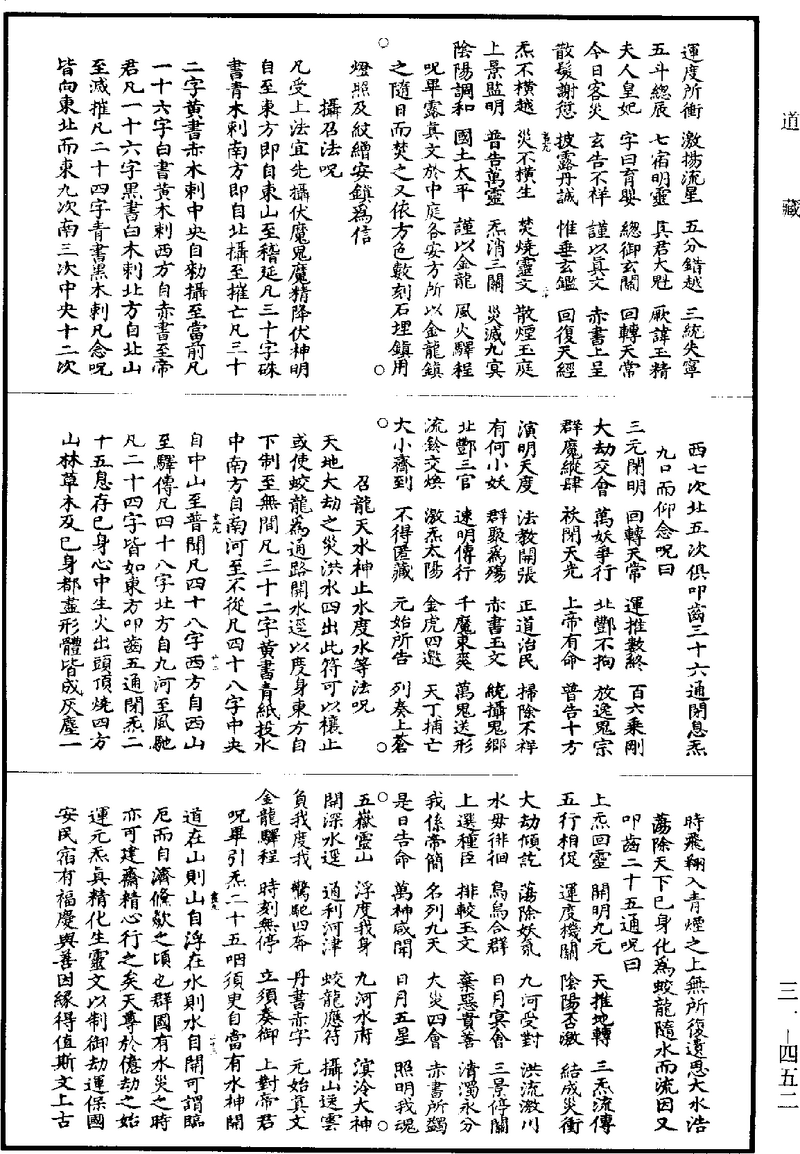 道藏
三一—四五二
運度所衝　激揚流星　五分錯越　三統失寧
五斗總辰　七宿明靈　真君大魁　厥諱玉精
夫人皇妃　字曰育嬰　總御玄關　回轉天常
今日客災　玄告不祥　謹以真文　赤書上呈
散髮謝愆　披露丹誠　惟垂玄鑑　回復天經
炁不橫越　災不橫生　焚燒靈文　散煙玉庭
上景監明　普告萬靈　炁消三關　災滅九冥
陰陽調和　國土太平　謹以金龍　風火驛程
呪畢露真文於中庭各安方所以金龍鎮
之隨日而焚之又依方色數刻石埋鎮用
燈照及紋繒安鎮為信
攝召法呪
凡受上法宜先攝伏魔鬼魔精降伏神明
自至東方即自東山至稽延凡三十字硃
書青木刺南方即自北攝至摧亡凡三十
二字黃書赤木刺中央自勑攝至當前凡
一十六字白書黃木刺西方自赤書至帝
君凡一十六字黑書白木刺北方自北山
至滅摧凡二十四字青書黑木刺凡念呪
皆向東北而東九次南三次中央十二次
西七次北五次俱叩齒三十六通閉息炁
九口而仰念呪曰
三元開明　回轉天常　運推數終　百六乘剛
大劫交會　萬妖爭行　北酆不拘　放逸鬼宗
群魔縱肆　祅閉天光　上帝有命　普告十方
演明天度　法教開張　正道治民　掃除不祥
有何小妖　群聚為殤　赤書玉文　統攝鬼鄉
北酆三官　速明傳行　千魔束爽　萬鬼送形
流鈴交煥　激炁太陽　金虎四邀　天丁捕亡
大小齋到　不得匿藏　元始所告　列奏上蒼
召龍天水神止水度水等法呪
天地大劫之災洪水四出此符可以禳止
或使蛟龍為通路開水逕以度身東方自
下制至無間凡三十二字黃書青紙投水
中南方自南河至不從凡四十八字中央
自中山至普聞凡四十八字西方自西山
至驛傳凡四十八字北方自九河至風馳
凡二十四字皆如東方叩齒五通閉炁二
十五息存已身心中生火出頭頂燒四方
山林草木及已身都盡形體皆成灰塵一
時飛翔入青煙之上無所復遺思大水浩
蕩除天下已身化為蛟龍隨水而流因又
叩齒二十五通呪曰
上炁回靈　開明九元　天推地轉　三炁流傳
五行相促　運度機關　陰陽否激　結成災衝
大劫傾訖　蕩除妖氛　九河受對　洪流激川
水毋徘徊　鳥鳥合群　日月冥會　三景停關
上選種臣　排較玉文　棄惡貫善　清濁永分
我係帝簡　名列九天　大災四會　赤書所蠲
是日告命　萬神咸開　日月五星　照明我魂
五嶽靈山　浮度我身　九河水府　溟泠大神
開深水逕　通利河津　蛟龍應符　攝山送雲
負我度我　驚馳四奔　丹書赤字　元始真文
金龍驛程　時刻無停　立須奏御　上對帝君
呪畢引炁二十五咽須臾自當有水神開
道在山則山自浮在水則水自開可謂臨
厄而自濟儵歘之頃也群國有水災之時
亦可建齋精心行之矣天尊於億劫之始
運元炁真精化生靈文以制御劫運保國
安民宿有福慶與善因緣得值斯文上古